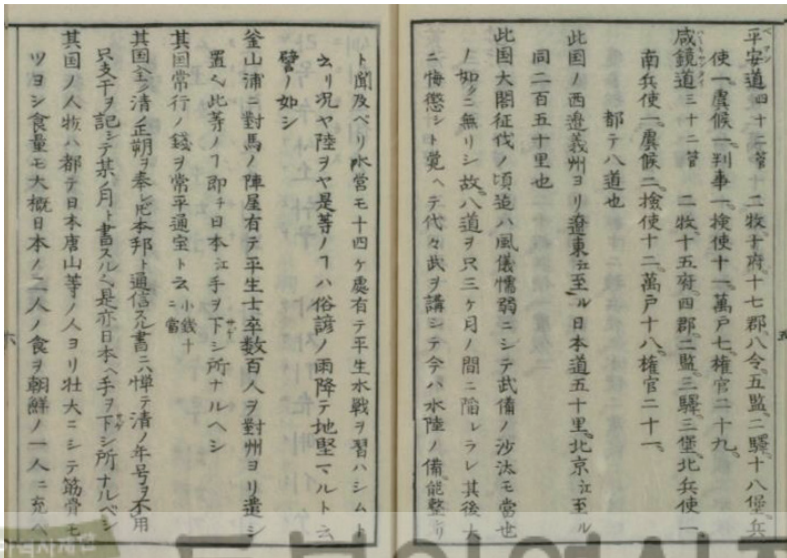 平安道 四十二管 二牧十府十七郡八令五監二驛十八堡兵
使一虞候一判事一撿使十一萬戸七權官二十九
咸鏡道 三十二管 二牧十五府四郡二監三驛三堡北兵使一
南兵使一虞候二撿使十二萬戸十八權官二十一
都テ八道也
此国ノ西遼義州ヨリ遼東江至ル日本道五十里北京江至ル
同二百五十里也
此国大閤征伐ノ頃迠ハ風儀懦弱ニシテ武備ノ沙汰モ當世
ノ如クニ無リシ故八道ヲ只三ケ月ノ間ニ陥レラレ其後大
ニ悔懲シト覚ヘテ代々武ヲ講シテ今ハ水陸ノ備能整リ
ト聞及ベリ水営モ十四ケ處有テ平生水戰ヲ習ハシムト
云リ况ヤ陸ヲヤ是等ノヿハ俗諺ノ雨降テ地堅マルト云
譬ノ如シ
釜山浦ニ對馬ノ陣屋有テ平生士卒数百人ヲ對州ヨリ遣シ
置ヘ此等ノヿ即チ日本江手ヲ下シ所ナルヘシ
其国常行ノ錢ヲ常平通宝ト云 小銭十ニ當
其国全ク清ノ正朔ヲ奉シ尼本邦ト通信スル書ニハ憚テ清ノ年号ヲ不用
只支干ヲ記シテ某ノ月ト書スルヘ是亦日本ヘ手ヲ下シ所ナルベシ
其国ノ人物ハ都テ日本唐山等ノ人ヨリ壮大ニシテ筋骨モ
ツヨシ食量モ大概日本ノ二人ノ食ヲ朝鮮ノ一人ニ充ヘ